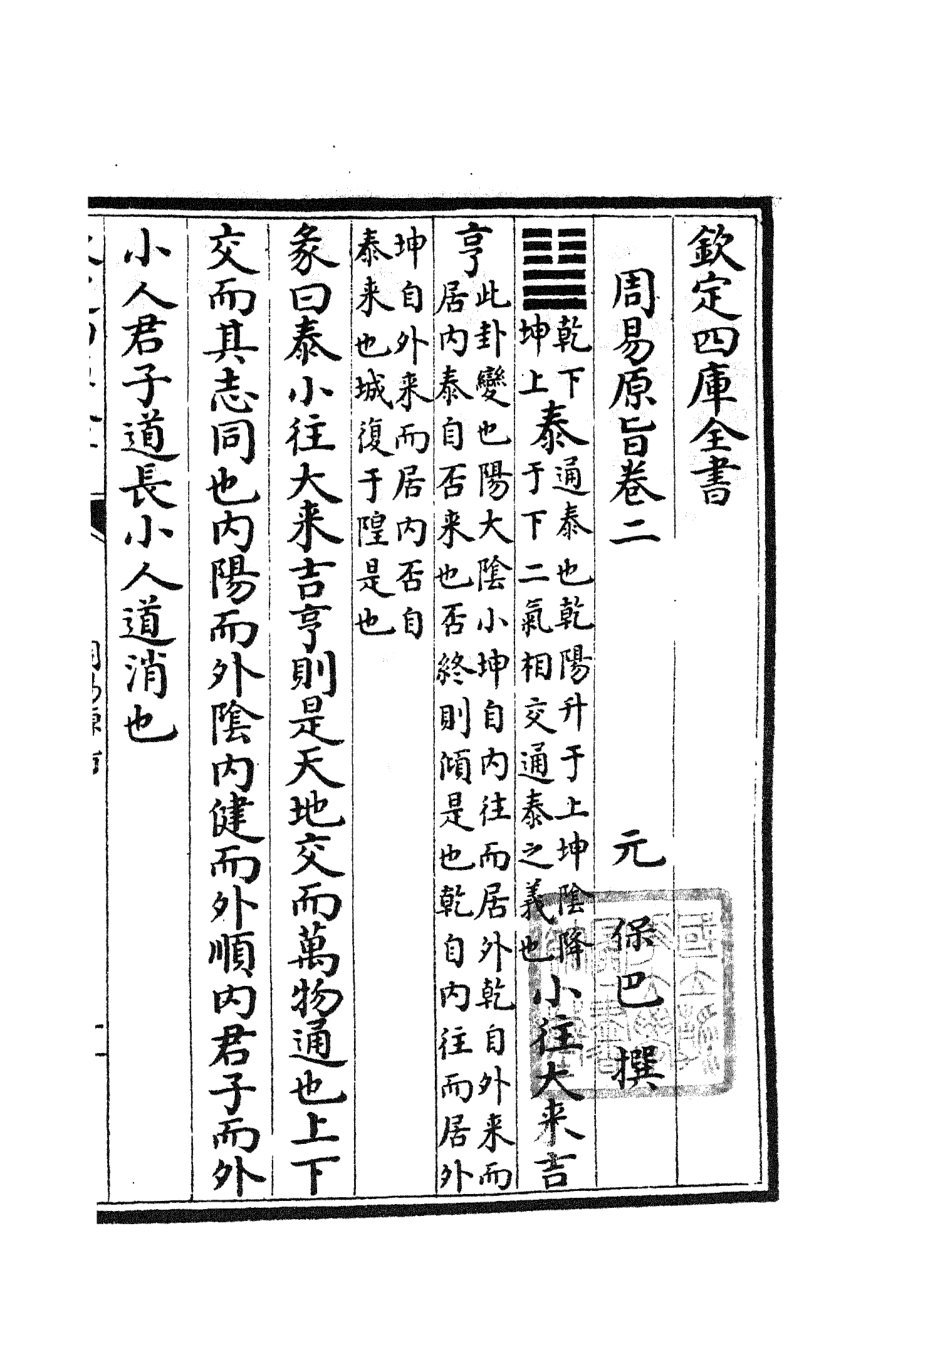 欽定四庫全書
周易原旨卷二
元 保巴 撰
䷊乾下坤上泰通泰也乾陽升于上坤陰降于下二氣相交通泰之義也小往大来吉
亨此卦變也陽大陰小坤自内往而居外乾自外来而居内泰自否来也否終則傾是也乾自内往而居外
坤自外来而居内否自泰来也城復于隍是也
彖曰泰小往大来吉亨則是天地交而萬物通也上下
交而其志同也内陽而外陰内健而外順内君子而外
小人君子道長小人道消也